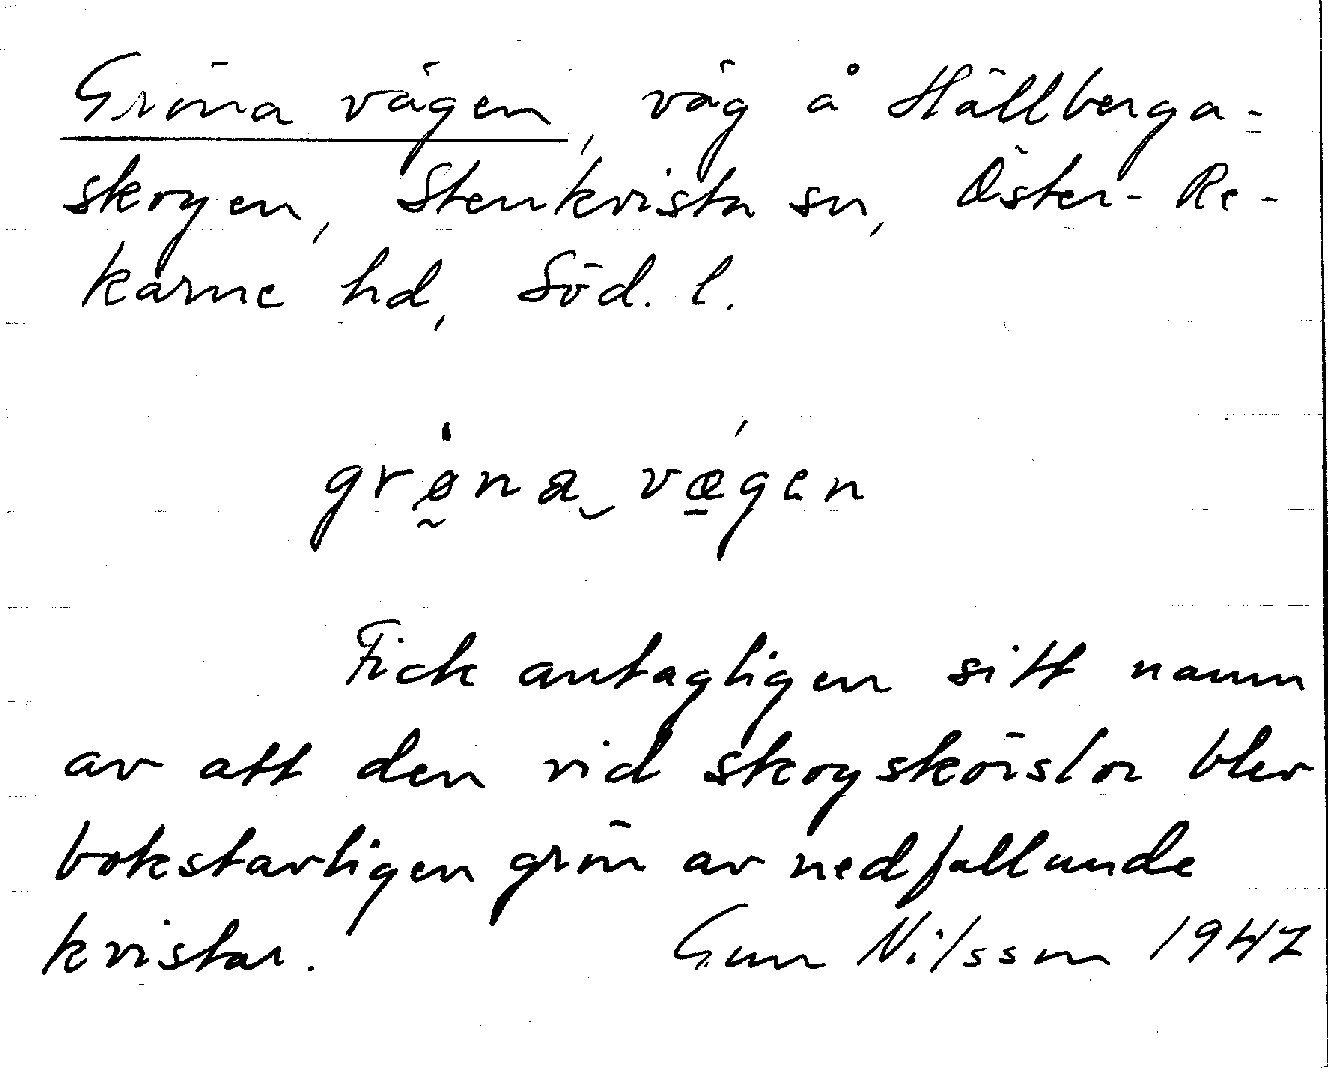 Gröna vägen, väg å Hällberga-
skogen, Stenkvista sn, Öster-Re-
karne hd, Söd. l.
grǿ̰na‿vǽ̲gen
Fick antagligen sitt namn
av att den vid skogskörslor blev
bokstavligen grön av nedfallande
kvistar. Gun Nilsson 1947